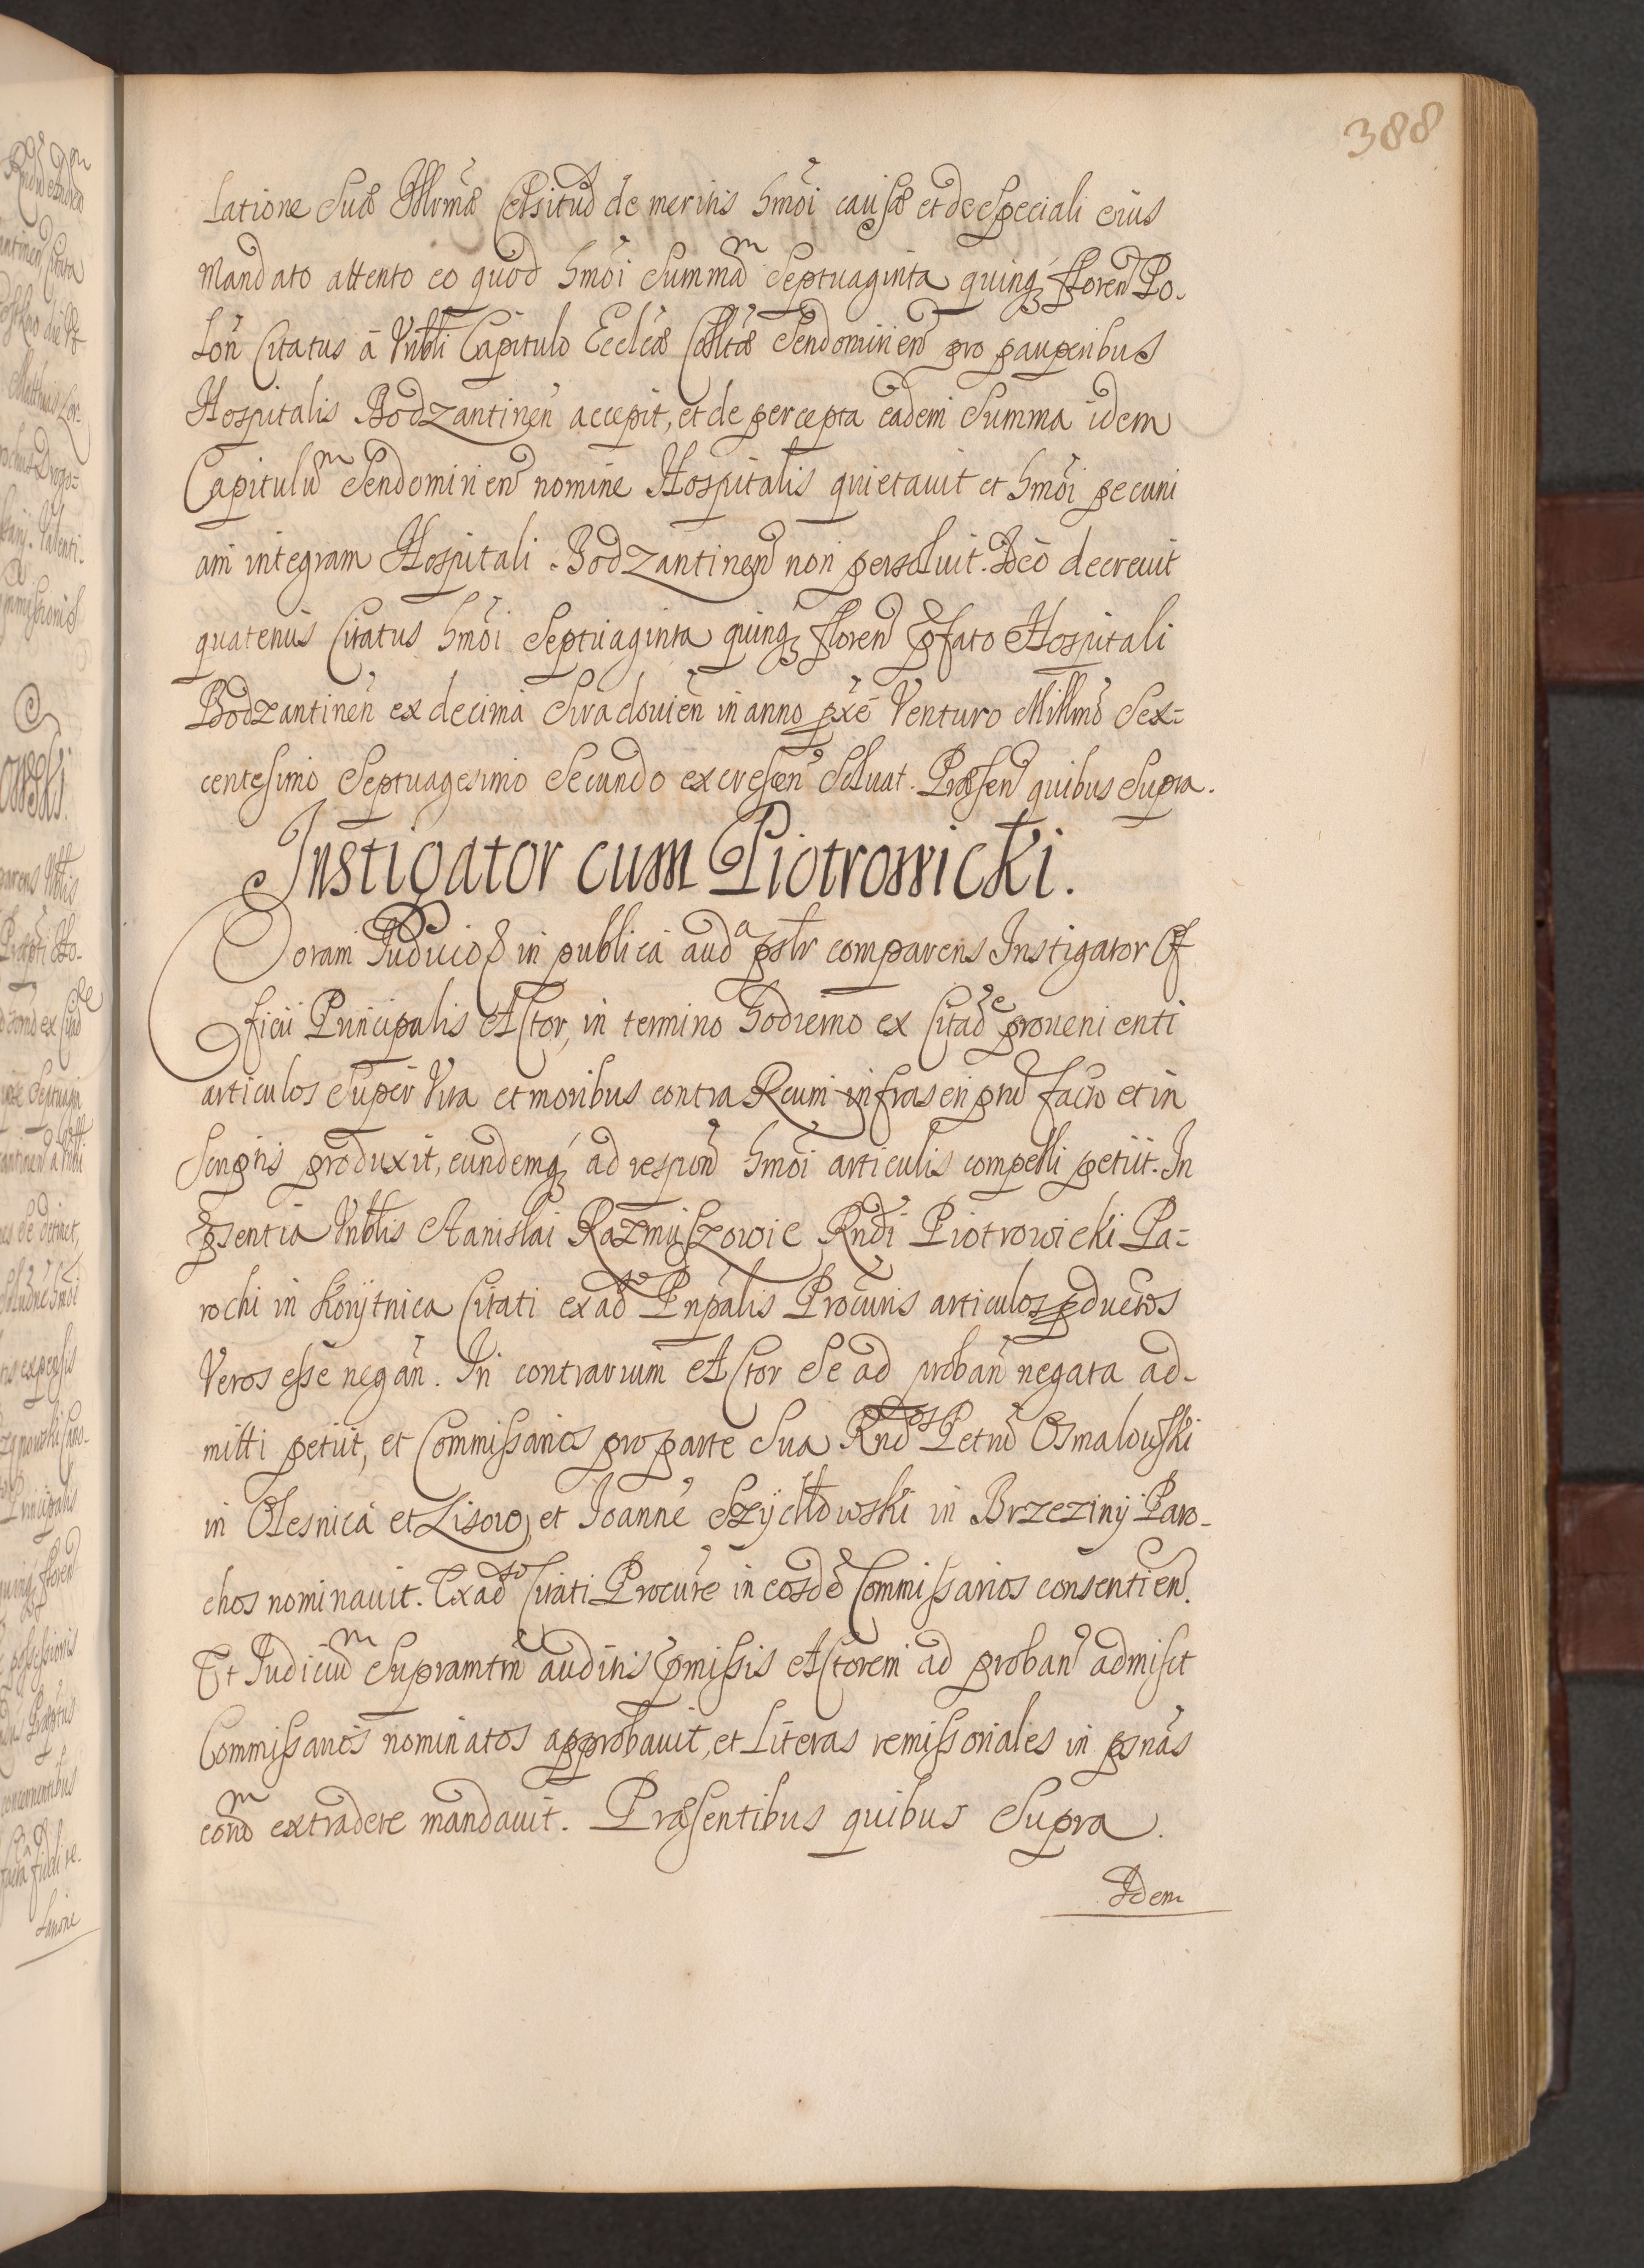 388
latione Suæ Illrmæ Celsitud de meritis hmõi causæ et de speciali eius
mandato attento eo quod hmõi Summam Septuaginta quinq floren Po-
lon Citatus à Vnbli Capitulo Ecclæ Colltæ Sendominien pro pauperibus
Hospitalis Bodzantinen accepit, et de percepta eadem Summa idem
Capitulum Sendominien nomine Hospitalis quietauit et hmõi pecuni
am integram Hospitali Bodzantinen non persoluit. Ideo decreuit
quatenus Citatus hmõi Septuaginta quinq floren pfato Hospitali
Bodzantinen ex decima Sieradouien in anno pxe Venturo Millmo Sex=
centesimo Septuagesimo Secundo excrescen Soluat. Præsen quibus Supra.
Instigator cum Piotrowicki.
Coram Iudicio & in publica auda psltr comparens Instigator Of
ficii Principalis Actor, in termino hodierno ex Citadne proueni enti
articulos Super Vita et moribus contra Reum infrascri pnt facto et in
Scriptis produxit, eundemq ad respon hmõi articulis compelli petiit. In
psentia Vnblis Stanislai Razmuszowic Rndi Piotrowicki Pa=
rochi in Konytnica Citati ex adso Pnpalis Procuris articulos pductos
Veros esse negan. In contrarium Actor Se ad proban negata ad-
mitti petiit, et Commissarios pro parte Sua Rndos Petrum Osmalowski
in Olesnica et Lisow, et Ioannẽ Szychowski in Brzeziny Paro-
chos nominauit. Ex adso Citati Procure in eosdẽ Commissarios consentien.
Et Iudicium Supramtm auditis pmissis Actorem ad proban admisit
Commissarios nominatos approbauit, et Literas remissoriales in psnas
eorum extradere mandauit. Præsentibus quibus Supra.
Idem